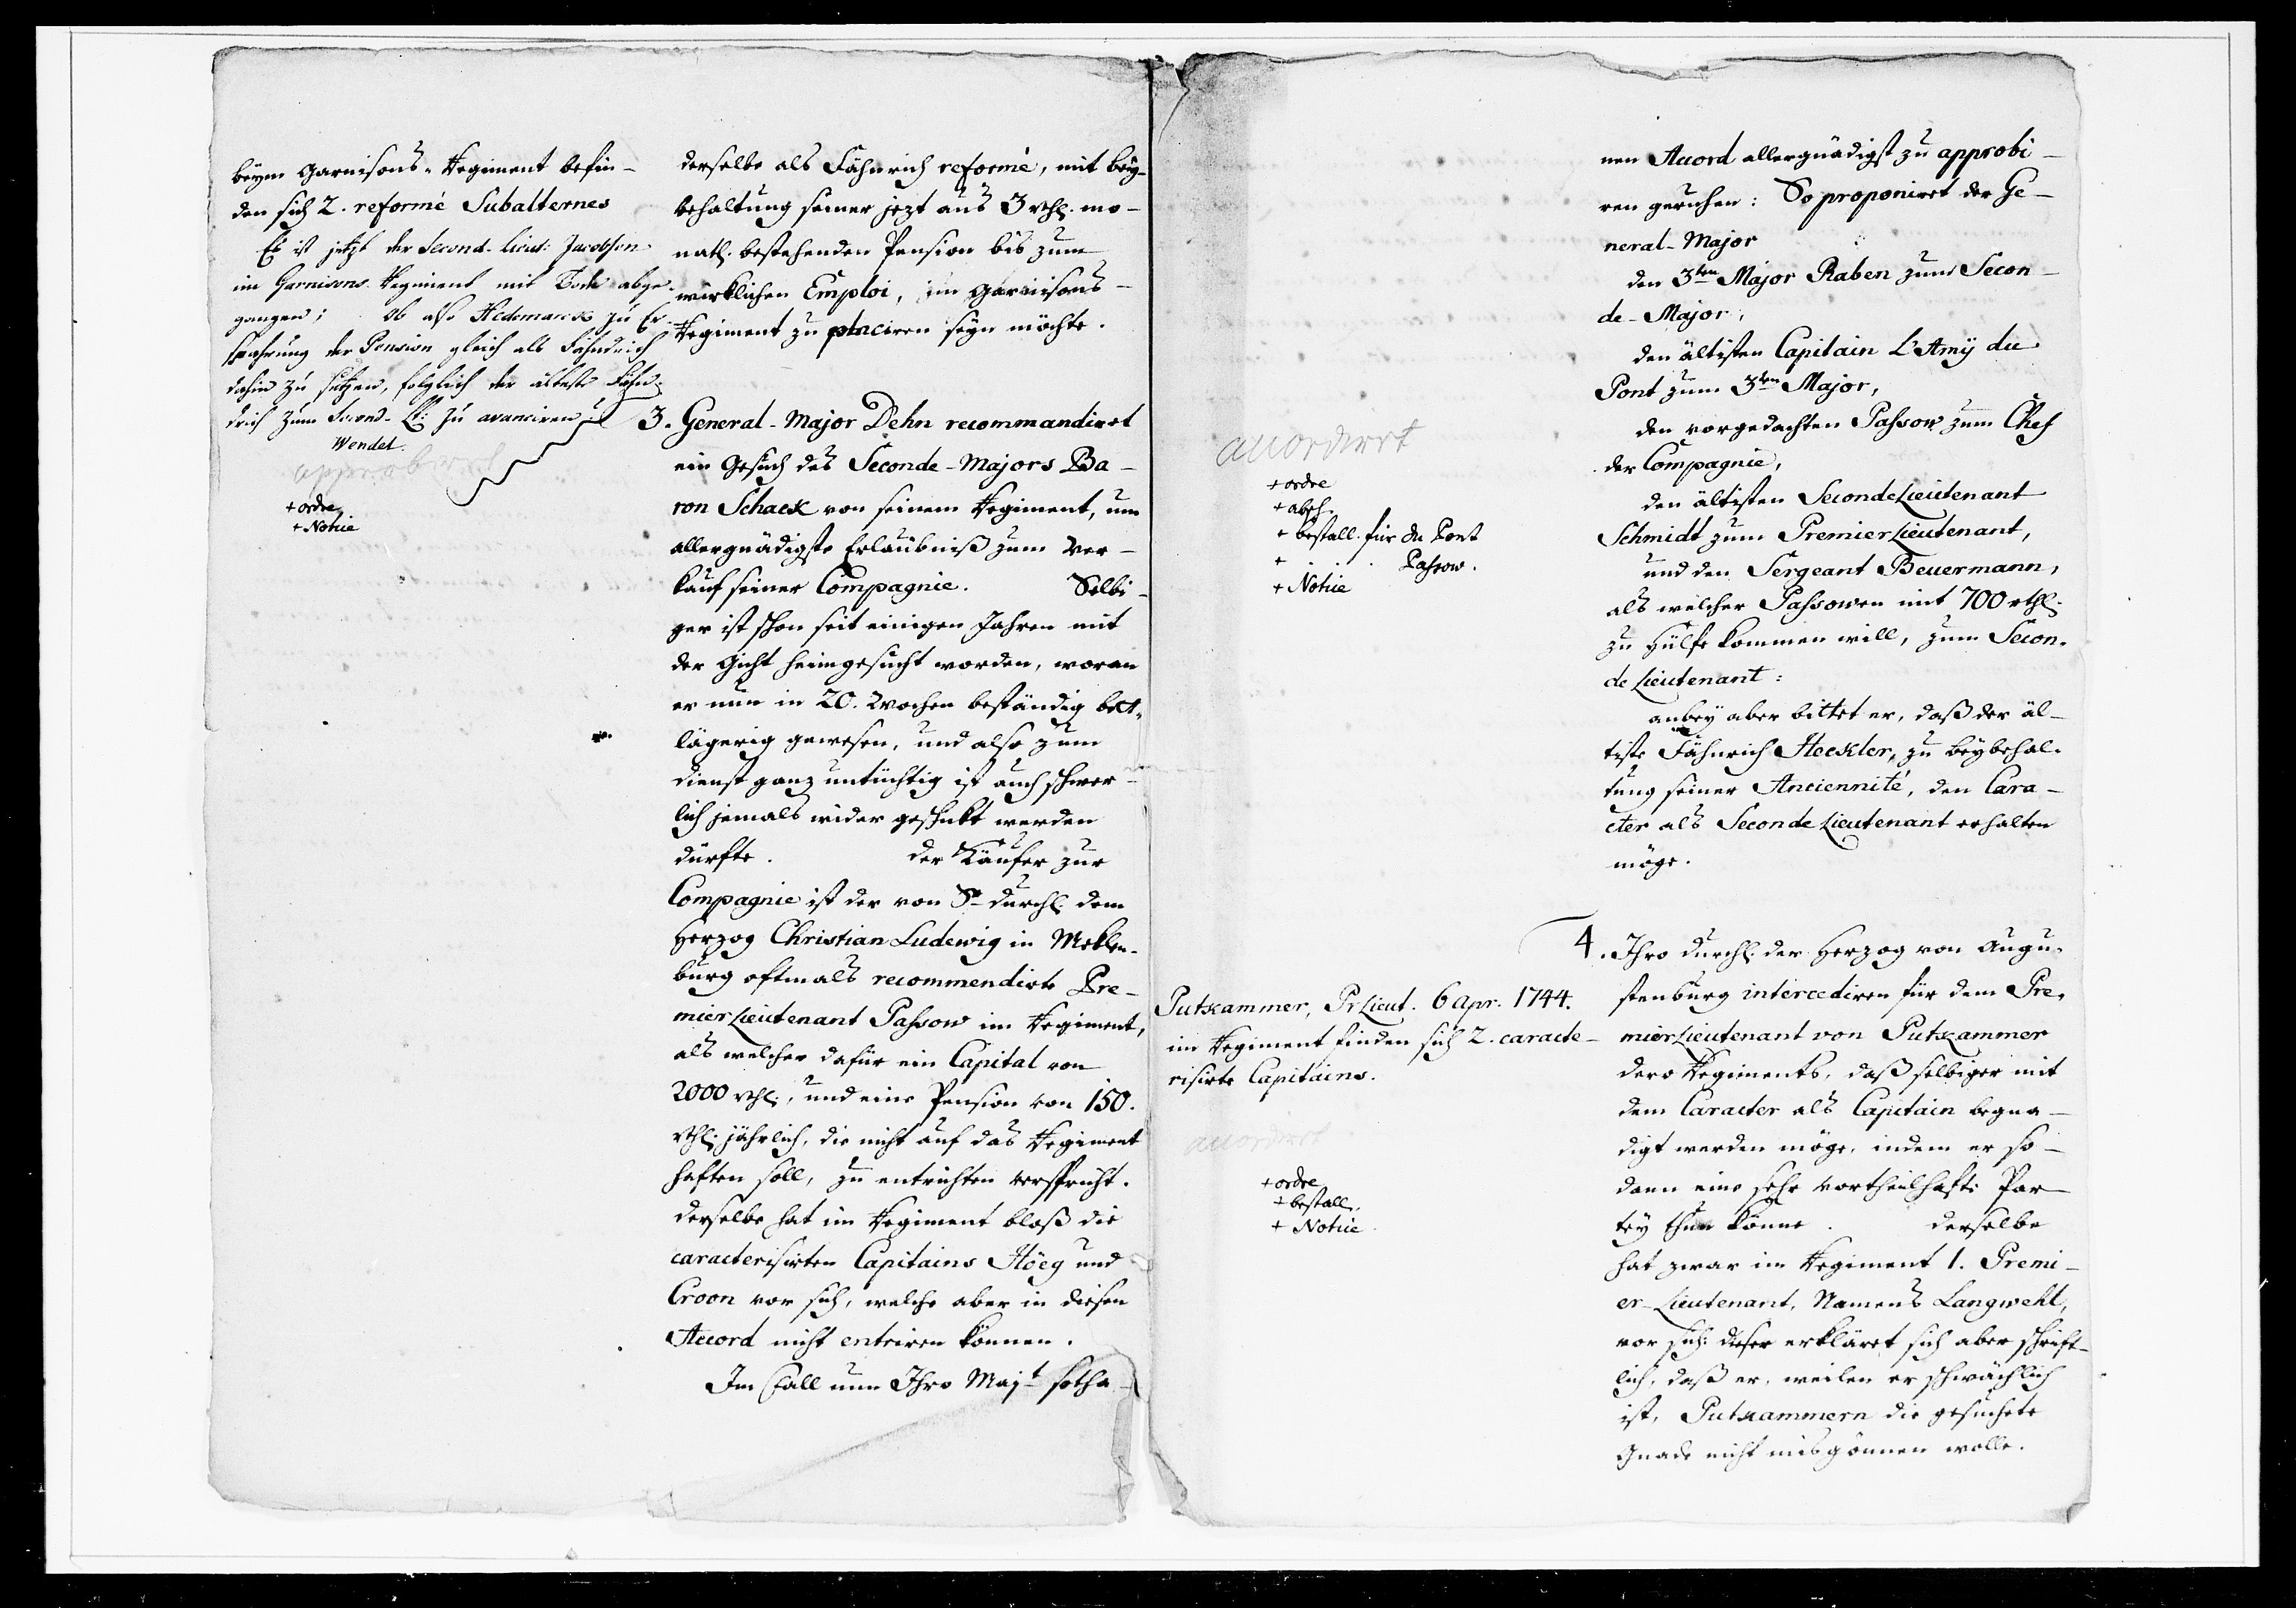 beym Garnisons-Regiment befin-
den sich 2. reformé Subalternes
Es ist jetzt der Second-Lieut: Jacobsen
im Garnisons Regiment mit Tode abge-
gangen; ob also Hedemarck zu Er-
spahrung der Pension gleich als Fähndrich
dahin zu setzen, folglich der älteste Fähn-
drich zum Second-Lt: zu avanciren?
Wendet.
approbiret
+ ordre
+ Notice
derselbe als Fähnrich reformé, mit bey-
behaltung seiner jezt aus 3 rthl. mo-
natl. bestehenden Pension bis zum
würklichen Emploi, im Garnisons-
Regiment zu placiren seyn möchte.
3. General-Major Dehn recommandiret
ein Gesuch des Seconde-Majors Ba-
ron Schack von seinem Regiment, um
allergnädigste Erlaubniß zum Ver-
kauf seiner Compagnie. Selbi-
ger ist schon seit einigen Jahren mit
der Gicht heimgesucht worden, woran
er nun in 20. Wochen beständig bett-
lägerig gewesen, und also zum
dienst ganz untüchtig ist auch schwer-
lich jemals wider geschikt werden
dürfte. der Käufer zur
Compagnie ist der von Sr durchl. dem
Herzog Christian Ludewig in Meklen-
burg oftmals recommendirte Pre-
mierLieutenant Passow im Regiment,
als welcher dafür ein Capital von
2000 rthl., und eine Pension von 150.
rthl. jährlich, die nicht auf das Regiment
haften soll, zu entrichten verspricht.
derselbe hat im Regiment bloß die
caracterisirten Capitains Höeg und
Croon vor sich, welche aber in diesen
Accord nicht entriren können.
Im Fall nun Ihro Majt sotha-
nen Accord allergnädigst zu approbi-
ren geruhen: So proponiret der Ge-
neral-Major
den 3ten Major Raben zum Secon-
de-Major,
den ältisten Capitain L'Amÿ du
Pont zum 3ten Major,
den vorgedachten Passow zum Chef
der Compagnie,
den ältisten SecondeLieutenant
Schmidt zum PremierLieutenant,
und den Sergeant Beuermann,
als welcher Passowen mit 700 rthl.
zu hülfe kommen will, zum Secon-
deLieutenant:
anbey aber bittet er, daß der äl-
tiste Fähnrich Heckler, zu beybehal-
tung seiner Anciennité, den Cara-
cter als SecondeLieutenant erhalten
möge.
accorderet
+ ordre
+ absch.
+ bestall. für du Pont
+ . . Passow.
+ Notice
4. Ihro durchl. der Herzog von Augu-
stenburg intercediren für dem Pre-
mierLieutenant von Putkammer
dero Regiments, daß selbiger mit
dem Caracter als Capitain begna-
digt werden möge, indem er so-
dann eine sehr vortheilhafte Par-
tey thun könne. derselbe
hat zwar im Regiment 1. Premi-
er-Lieutenant, Namens Langwehl,
vor sich: dieser erkläret sich aber schrift-
lich, daß er, weilen er schwächlich
ist, Putkammern die gesuchte
Gnade nicht misgönnen wolle.
Putkammer, PrLieut. 6 Apr. 1744.
im Regiment finden sich 2. caracte-
risirte Capitains.
accorderet
+ ordre
+ bestall.
+ Notice